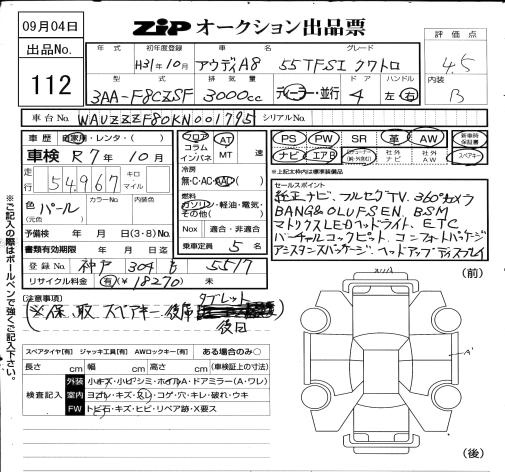 09月04日
ZIP オークション出品票
出品No.
112
年式 初年度登録 車名 グレード
H31年10月 アウディA8 55TFSI クワトロ
型式 排気量 ドア ハンドル
3AA-F8CZSF 3000cc ディーラー・並行 4 左 右
評価点
4.5
内装
B
車台No. WAUZZZF80KN001795 シリアルNo.
車歴 自家用・レンタ( )
フロア コラム インパネ AT MT 速
PS PW SR 革 AW 新車時保証書
ナビ エアB 社外ナビ 社外AW スペアキー
車検 R7年10月
※上記太枠内は標準装備品
走行 54,967 キロ マイル
冷房 無・C・AC・AAC
色(元色) パール カラーNo. 内装色
燃料 ガソリン・軽油・電気・その他( )
予備検 年 月 日(3・8)No.
Nox 適合・非適合
書類有効期限 年 月 日
乗車定員 5名
登録No. 神戸 304 5517
リサイクル料金 有(¥18270) 未
セールスポイント
純正ナビ、フルセグTV、360°カメラ
BANG&OLUFSEN、BSM
マトリクスLEDヘッドライト、ETC
バーチャルコックピット、コンフォートパッケージ
アシスタンスパッケージ、ヘッドアップディスプレイ
(注意事項)
(※保、取、スペアキー、後席タブレット
後日
(前)
スペアタイヤ[有] ジャッキ工具[有] AWロックキー[有] ある場合のみ○
長さ cm 幅 cm 高さ cm (車検証上の寸法)
検査記入
外装 小キズ・小ビシミ・ホイルA・ドアミラー(A・ワレ)
室内 ヨゴレ・キズ・スレ・コゲ・穴・キレ・破れ・ウキ
FW トビ石・キズ・ヒビ・リペア跡・X要ス
A'
(後)
※ご記入の際はボールペンで強くご記入下さい。